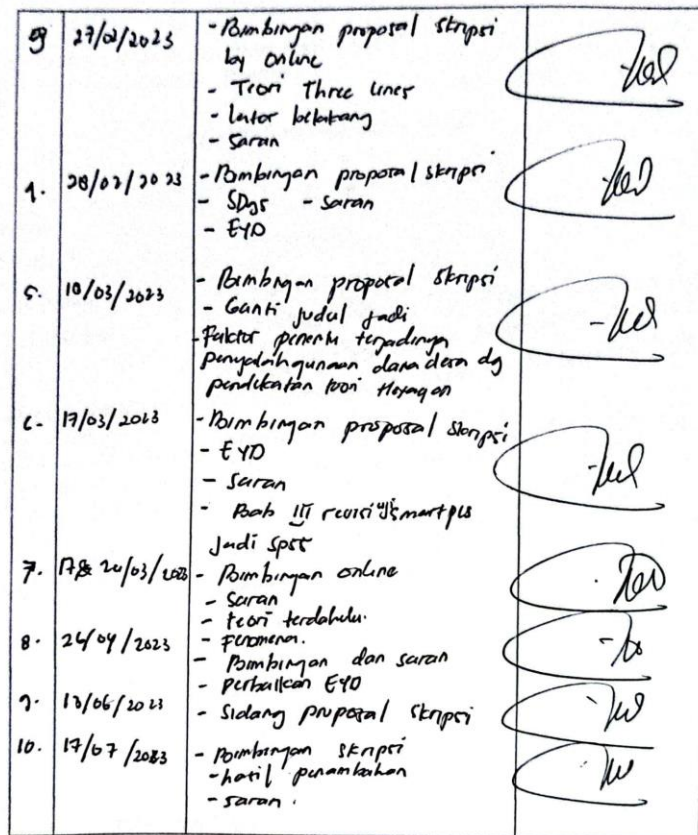 27/02/2023 - Bimbingan proposal skripsi
by online
- Teori Three lines
- latar belakang
- saran
4. 28/02/2023 - Bimbingan proposal skripsi
- SDgs - saran
- EYD
5. 10/03/2023 - Bimbingan proposal skripsi
- Ganti judul jadi
- Faktor terjadinya
penyalahgunaan dana desa dg
pendekatan teori Hexagon
6. 17/03/2023 - Bimbingan proposal skripsi
- EYD
- Saran
- Bab III revisi smartpls
jadi spss
7. 17& 20/03/2023 - Bimbingan online
- Saran
- teori terdahulu.
- Fenomena.
8. 26/04/2023 - Bimbingan dan saran
- perbaikan EYD
9. 13/06/2023 - Sidang proposal skripsi
10. 17/07/2023 - Bimbingan skripsi
- hasil penambahan
- saran.